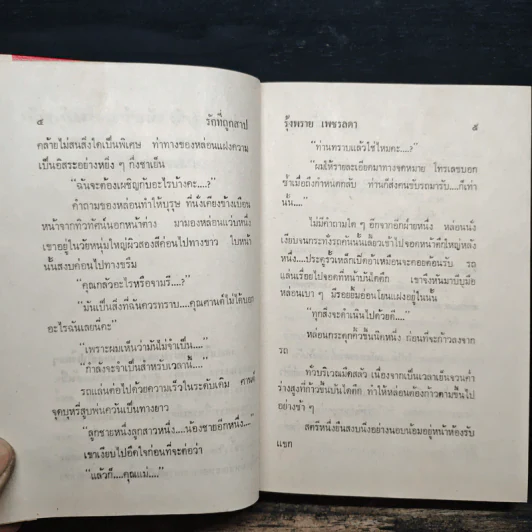 ๔ รักที่ถูกสาป
คล้ายไม่สนสิ่งใดเป็นพิเศษ ท่าทางของหล่อนแฝงความ
เป็นอิสระอย่างหยิ่ง ๆ กึ่งชาเย็น
“ฉันจะต้องเผชิญกับอะไรบ้างคะ....?”
คำถามของหล่อนทำให้บุรุษ ที่นั่งเคียงข้างเบือน
หน้าจากทิวทัศน์นอกหน้าต่าง มามองหล่อนแว่บหนึ่ง
เขาอยู่ในวัยหนุ่มใหญ่ผิวสองสีค่อนไปทางขาว ใบหน้า
นั้นสงบค่อนไปทางขรึม
“คุณกลัวอะไรหรือจามรี....?”
“มันเป็นสิ่งที่ฉันควรทราบ....คุณศานต์ไม่ได้บอก
อะไรฉันเลยนี่คะ”
“เพราะผมเห็นว่ามันไม่จำเป็น....”
“กำลังจะจำเป็นสำหรับเวลานี้....”
รถแล่นต่อไปด้วยความเร็วในระดับเดิม ศานต์
จุดบุหรี่สูบพ่นควันเป็นทางยาว
“ลูกชายหนึ่งลูกสาวหนึ่ง....น้องชายอีกหนึ่ง....”
เขาเงียบไปอึดใจก่อนที่จะต่อว่า
“แล้วก็....คุณแม่....”
รุ้งพราย เพชรลดา ๕
“ท่านทราบแล้วใช่ไหมคะ....?”
“ผมให้รายละเอียดมาทางจดหมาย โทรเลขบอก
ซ้ำเมื่อถึงกำหนดกลับ ท่านก็ส่งคนขับรถมารับ....ก็เท่า
นั้น....”
ไม่มีคำถามใด ๆ อีกจากอีกฝ่ายหนึ่ง หล่อนนั่ง
เงียบจนกระทั่งรถคันนั้นเลี้ยวเข้าไปจอดหน้าตึกใหญ่หลัง
หนึ่ง....ประตูรั้วเหล็กเปิดอ้าเหมือนจะคอยต้อนรับ รถ
แล่นเรื่อยไปจอดที่หน้าบันไดตึก เขาจึงหันมาบีบมือ
หล่อนเบา ๆ มีรอยยิ้มอ่อนโยนแฝงอยู่ในนั้น
“ทุกสิ่งจะดำเนินไปด้วยดี....”
หล่อนกระตุกคิ้วขึ้นนิดหนึ่ง ก่อนที่จะก้าวลงจาก
รถ
ทั่วบริเวณมืดสลัว เนื่องจากเป็นเวลาเย็นจวนค่ำ
ว่างสูงที่ก้าวขึ้นบันไดตึก ทำให้หล่อนต้องก้าวตามขึ้นไป
อย่างช้า ๆ
สตรีหนึ่งยืนสงบนิ่งอย่างนอบน้อมอยู่หน้าห้องรับ
แขก